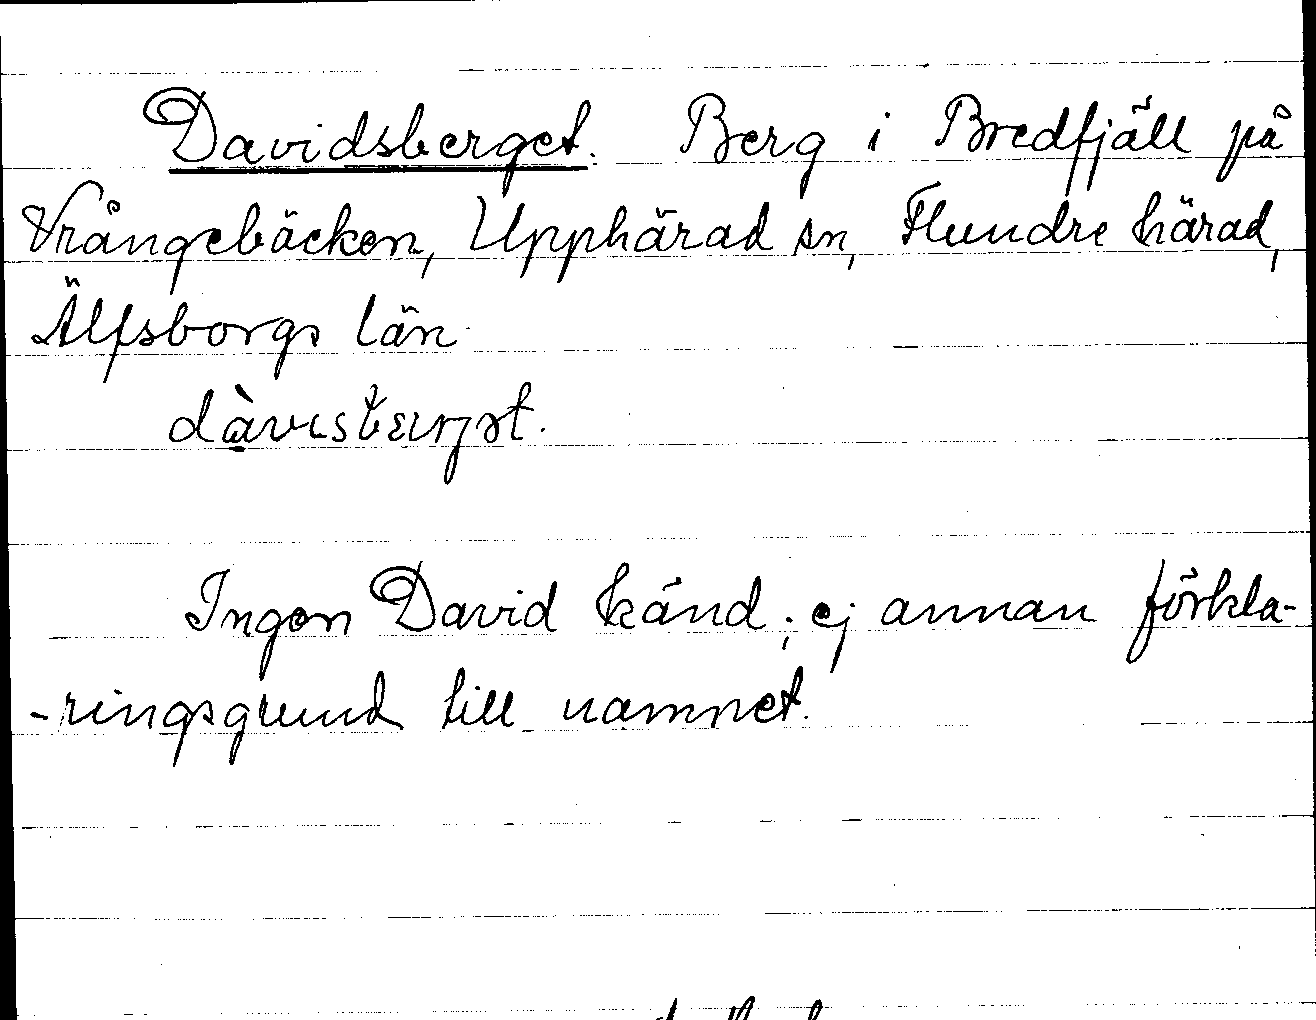 Davidsberget. Berg i Bredfjäll på
Vrångebäcken, Upphärad sn, Flundre härad,
Älfsborgs län.
Ingen David känd; ej annan förkla-
-ringsgrund till namnet.